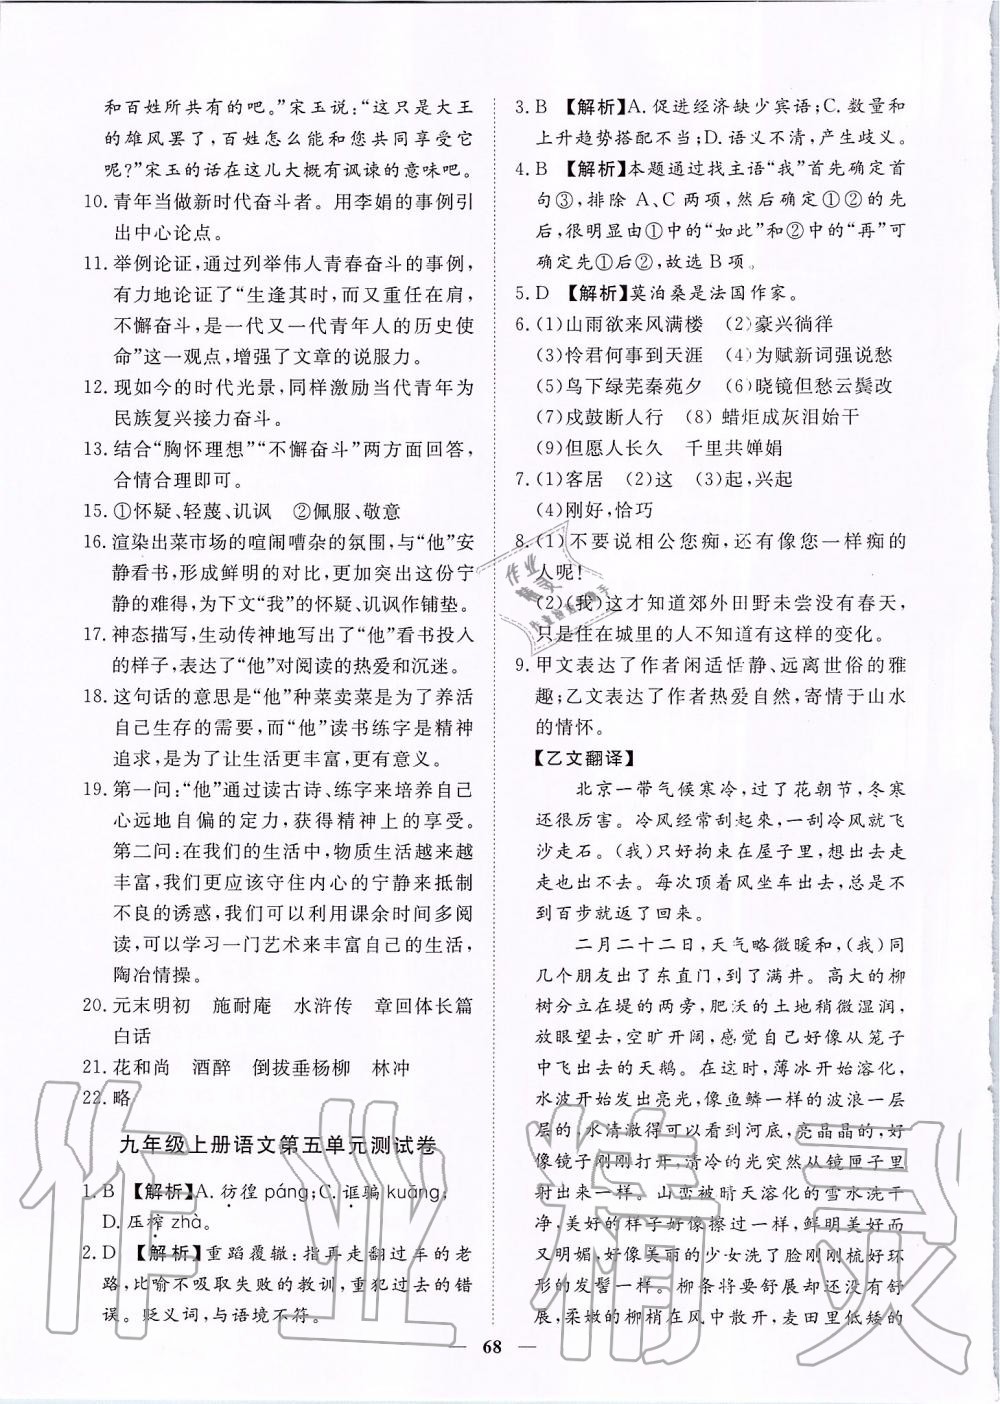 和百姓所共有的吧。”宋玉说:“这只是大王
的雄风罢了,百姓怎么能和您共同享受它
呢?”宋玉的话在这儿大概有讽谏的意味吧。
10. 青年当做新时代奋斗者。用李娟的事例引
出中心论点。
11. 举例论证,通过列举伟人青春奋斗的事例,
有力地论证了“生逢其时,而又重任在肩,
不懈奋斗,是一代又一代青年人的历史使
命”这一观点,增强了文章的说服力。
12. 现如今的时代光景,同样激励当代青年为
民族复兴接力奋斗。
13. 结合“胸怀理想”“不懈奋斗”两方面回答,
合情合理即可。
15. ①怀疑、轻蔑、讥讽 ②佩服、敬意
16. 渲染出菜市场的喧闹嘈杂的氛围,与“他”安
静看书,形成鲜明的对比,更加突出这份宁
静的难得,为下文“我”的怀疑、讥讽作铺垫。
17. 神态描写,生动传神地写出了“他”看书投入
的样子,表达了“他”对阅读的热爱和沉迷。
18. 这句话的意思是“他”种菜卖菜是为了养活
自己生存的需要,而“他”读书练字是精神
追求,是为了让生活更丰富,更有意义。
19. 第一问:“他”通过读古诗、练字来培养自己
心远地自偏的定力,获得精神上的享受。
第二问:在我们的生活中,物质生活越来越
丰富,我们更应该守住内心的宁静来抵制
不良的诱惑,我们可以利用课余时间多阅
读,可以学习一门艺术来丰富自己的生活,
陶冶情操。
20. 元末明初 施耐庵 水浒传 章回体长篇
白话
21. 花和尚 酒醉 倒拔垂杨柳 林冲
22. 略
九年级上册语文第五单元测试卷
1. B 【解析】A. 彷徨 páng;C. 诓骗 kuāng;
D. 压榨 zhà。
2. D 【解析】重蹈覆辙:指再走翻过车的老
路,比喻不吸取失败的教训,重犯过去的错
误。贬义词,与语境不符。
3. B 【解析】A. 促进经济缺少宾语;C. 数量和
上升趋势搭配不当;D. 语义不清,产生歧义。
4. B 【解析】本题通过找主语“我”首先确定首
句③,排除 A、C 两项,然后确定①②的先
后,很明显由①中的“如此”和②中的“再”可
确定先①后②,故选 B 项。
5. D 【解析】莫泊桑是法国作家。
6. (1)山雨欲来风满楼 (2)豪兴徜徉
(3)怜君何事到天涯 (4)为赋新词强说愁
(5)鸟下绿芜秦苑夕 (6)晓镜但愁云鬓改
(7)戍鼓断人行 (8)蜡炬成灰泪始干
(9)但愿人长久 千里共婵娟
7. (1)客居 (2)这 (3)起,兴起
(4)刚好,恰巧
8. (1)不要说相公您痴,还有像您一样痴的
人呢!
(2)(我)这才知道郊外田野未尝没有春天,
只是住在城里的人不知道有这样的变化。
9. 甲文表达了作者闲适恬静、远离世俗的雅
趣;乙文表达了作者热爱自然,寄情于山水
的情怀。
【乙文翻译】
北京一带气候寒冷,过了花朝节,冬寒
还很厉害。冷风经常刮起来,一刮冷风就飞
沙走石。(我)只好拘束在屋子里,想出去走
走也出不去。每次顶着风坐车出去,总是不
到百步就返了回来。
二月二十二日,天气略微暖和,(我)同
几个朋友出了东直门,到了满井。高大的柳
树分立在堤的两旁,肥沃的土地稍微湿润,
放眼望去,空旷开阔,感觉自己好像从笼子
中飞出去的天鹅。在这时,薄冰开始溶化,
水波开始发出亮光,像鱼鳞一样的波浪一层
层的,水清澈得可以看到河底,亮晶晶的,好
像镜子刚刚打开,清冷的光突然从镜匣子里
射出来一样。山峦被晴天溶化的雪水洗干
净,美好的样子好像擦过一样,鲜明美好而
又明媚,好像美丽的少女洗了脸刚刚梳好环
形的发髻一样。柳条将要舒展却还没有舒
展,柔嫩的柳梢在风中散开,麦田里低矮的
68
作业精灵
作业
精灵